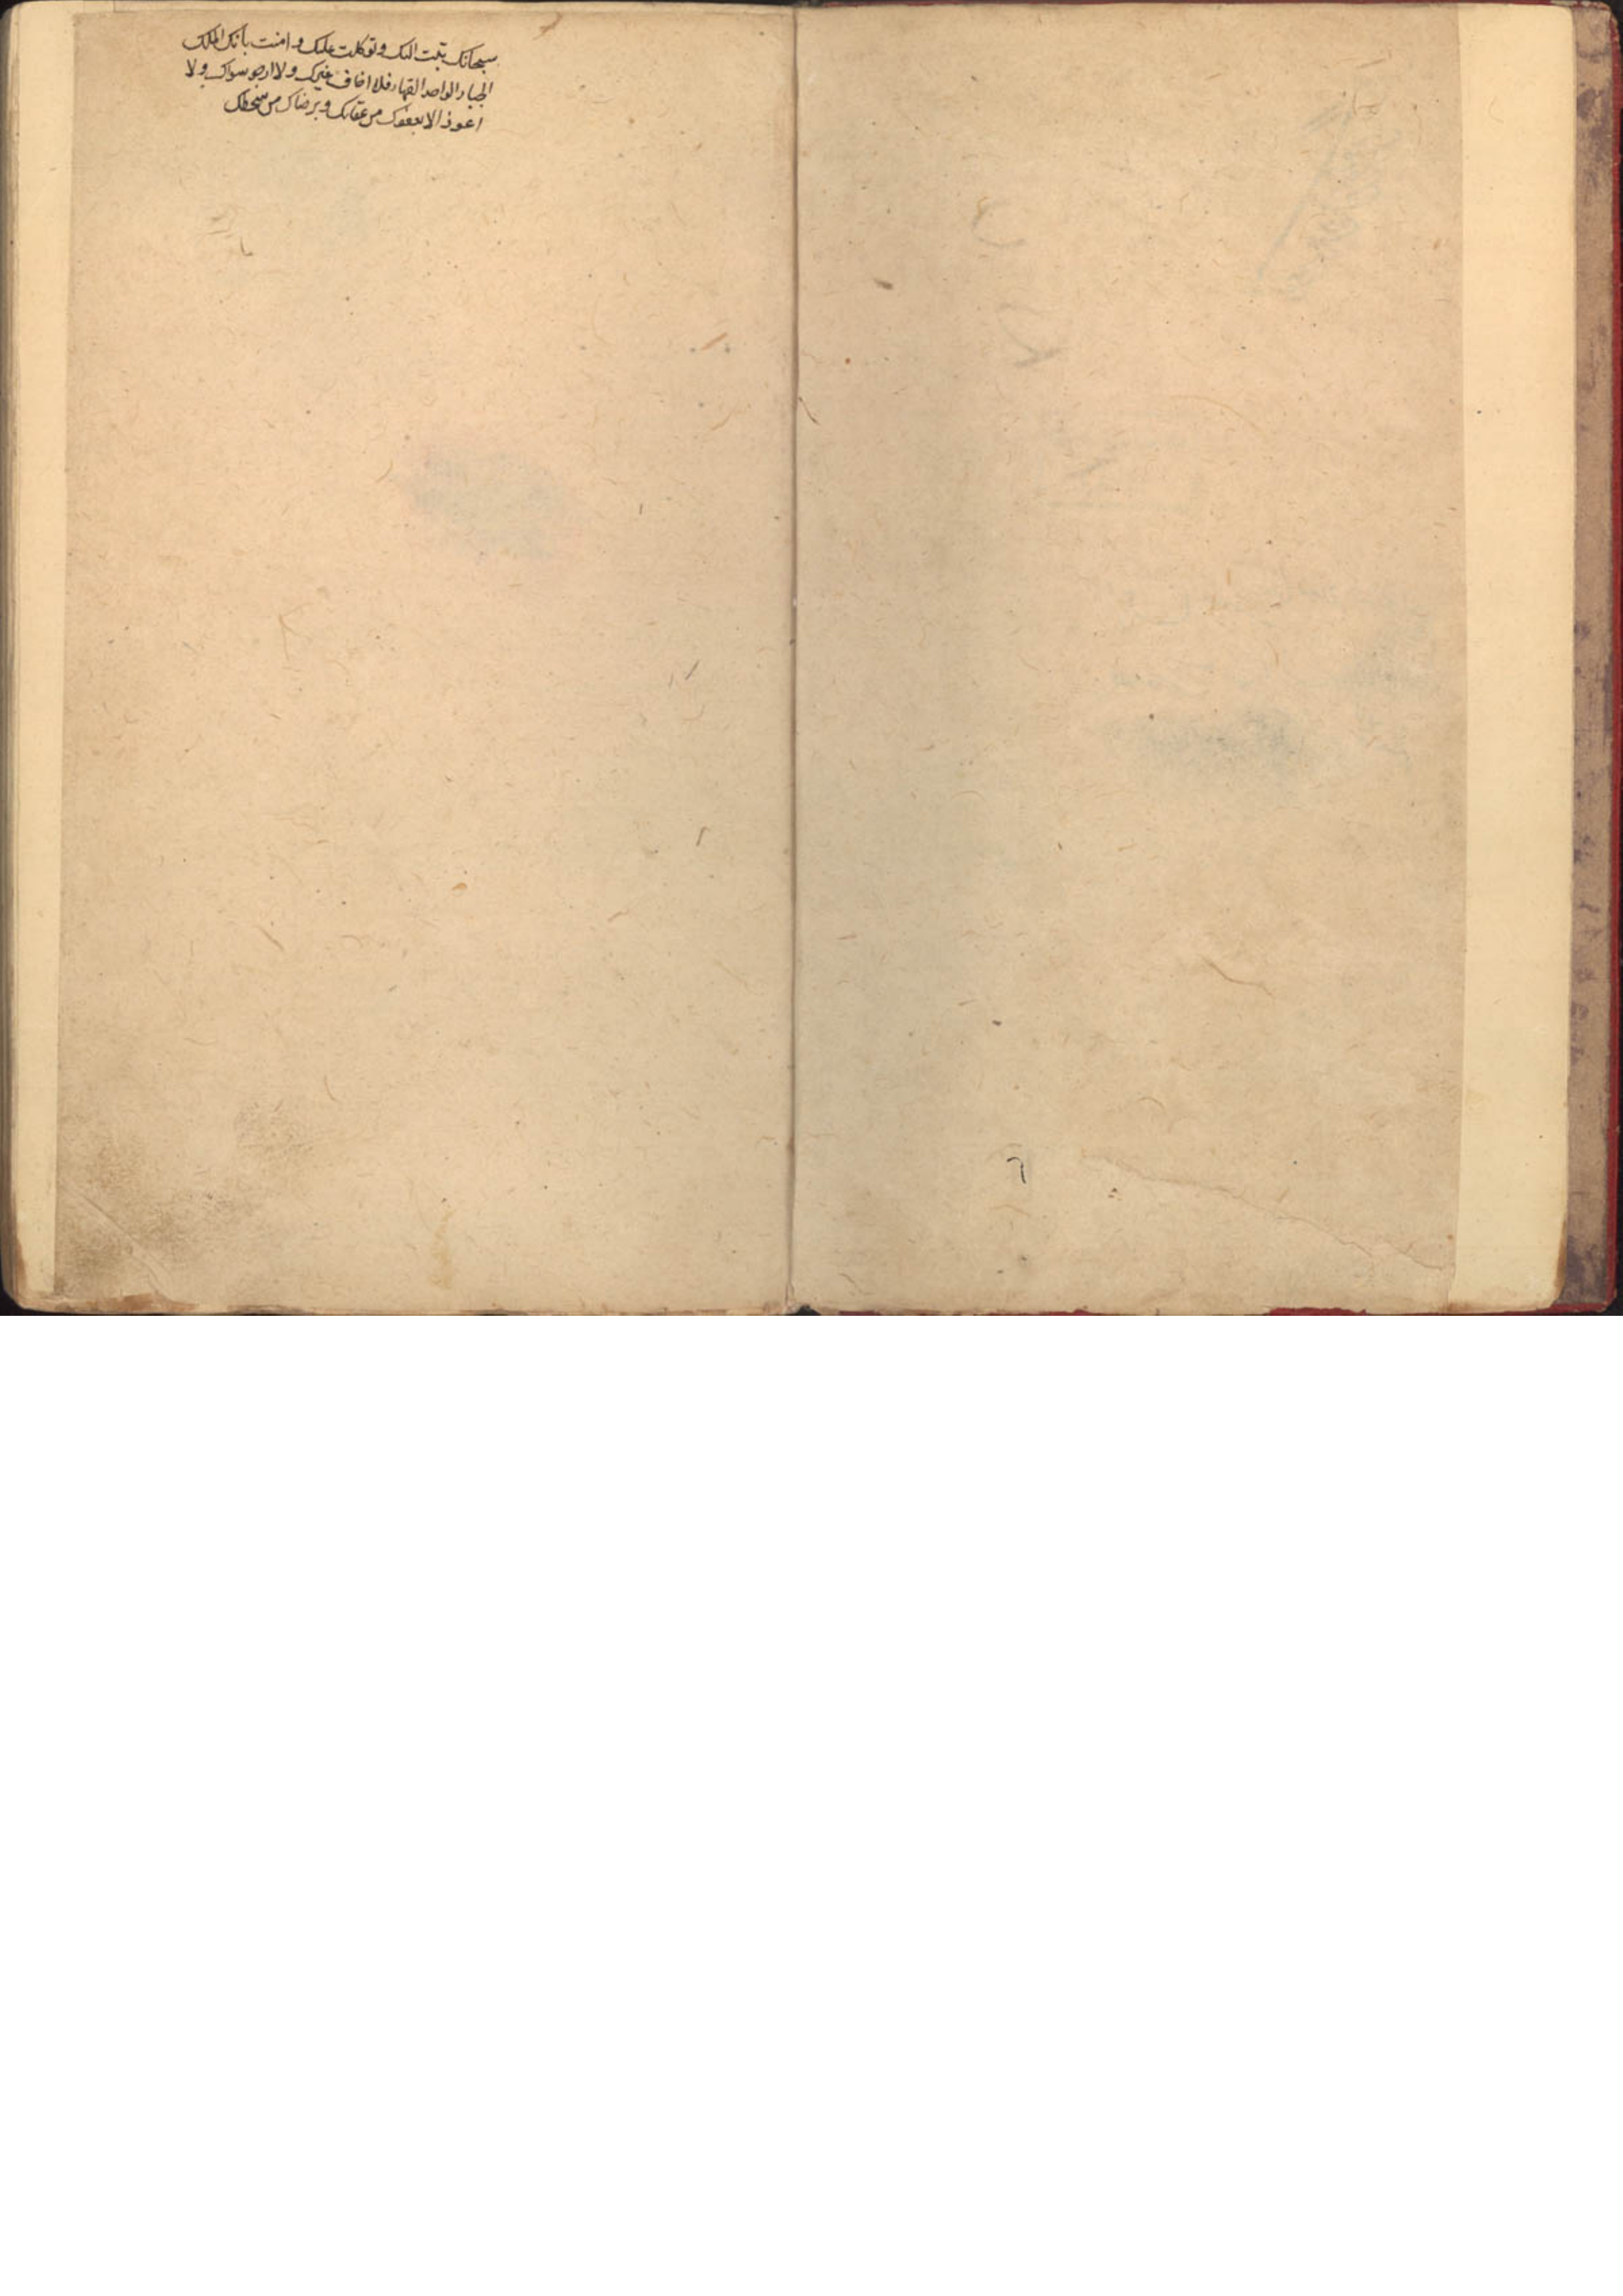 سبحانك تبت اليك و توكلت عليك و امنت بانك الملك
الجبار الواحد القهار فلا اخاف غيرك و لا ارجو سواك و لا
اعوذ الا بعفوك من عقابك و برضاك من سخطك